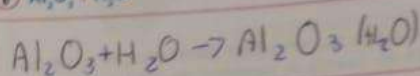 Al₂O₃+H₂O → Al₂O₃ (H₂O)